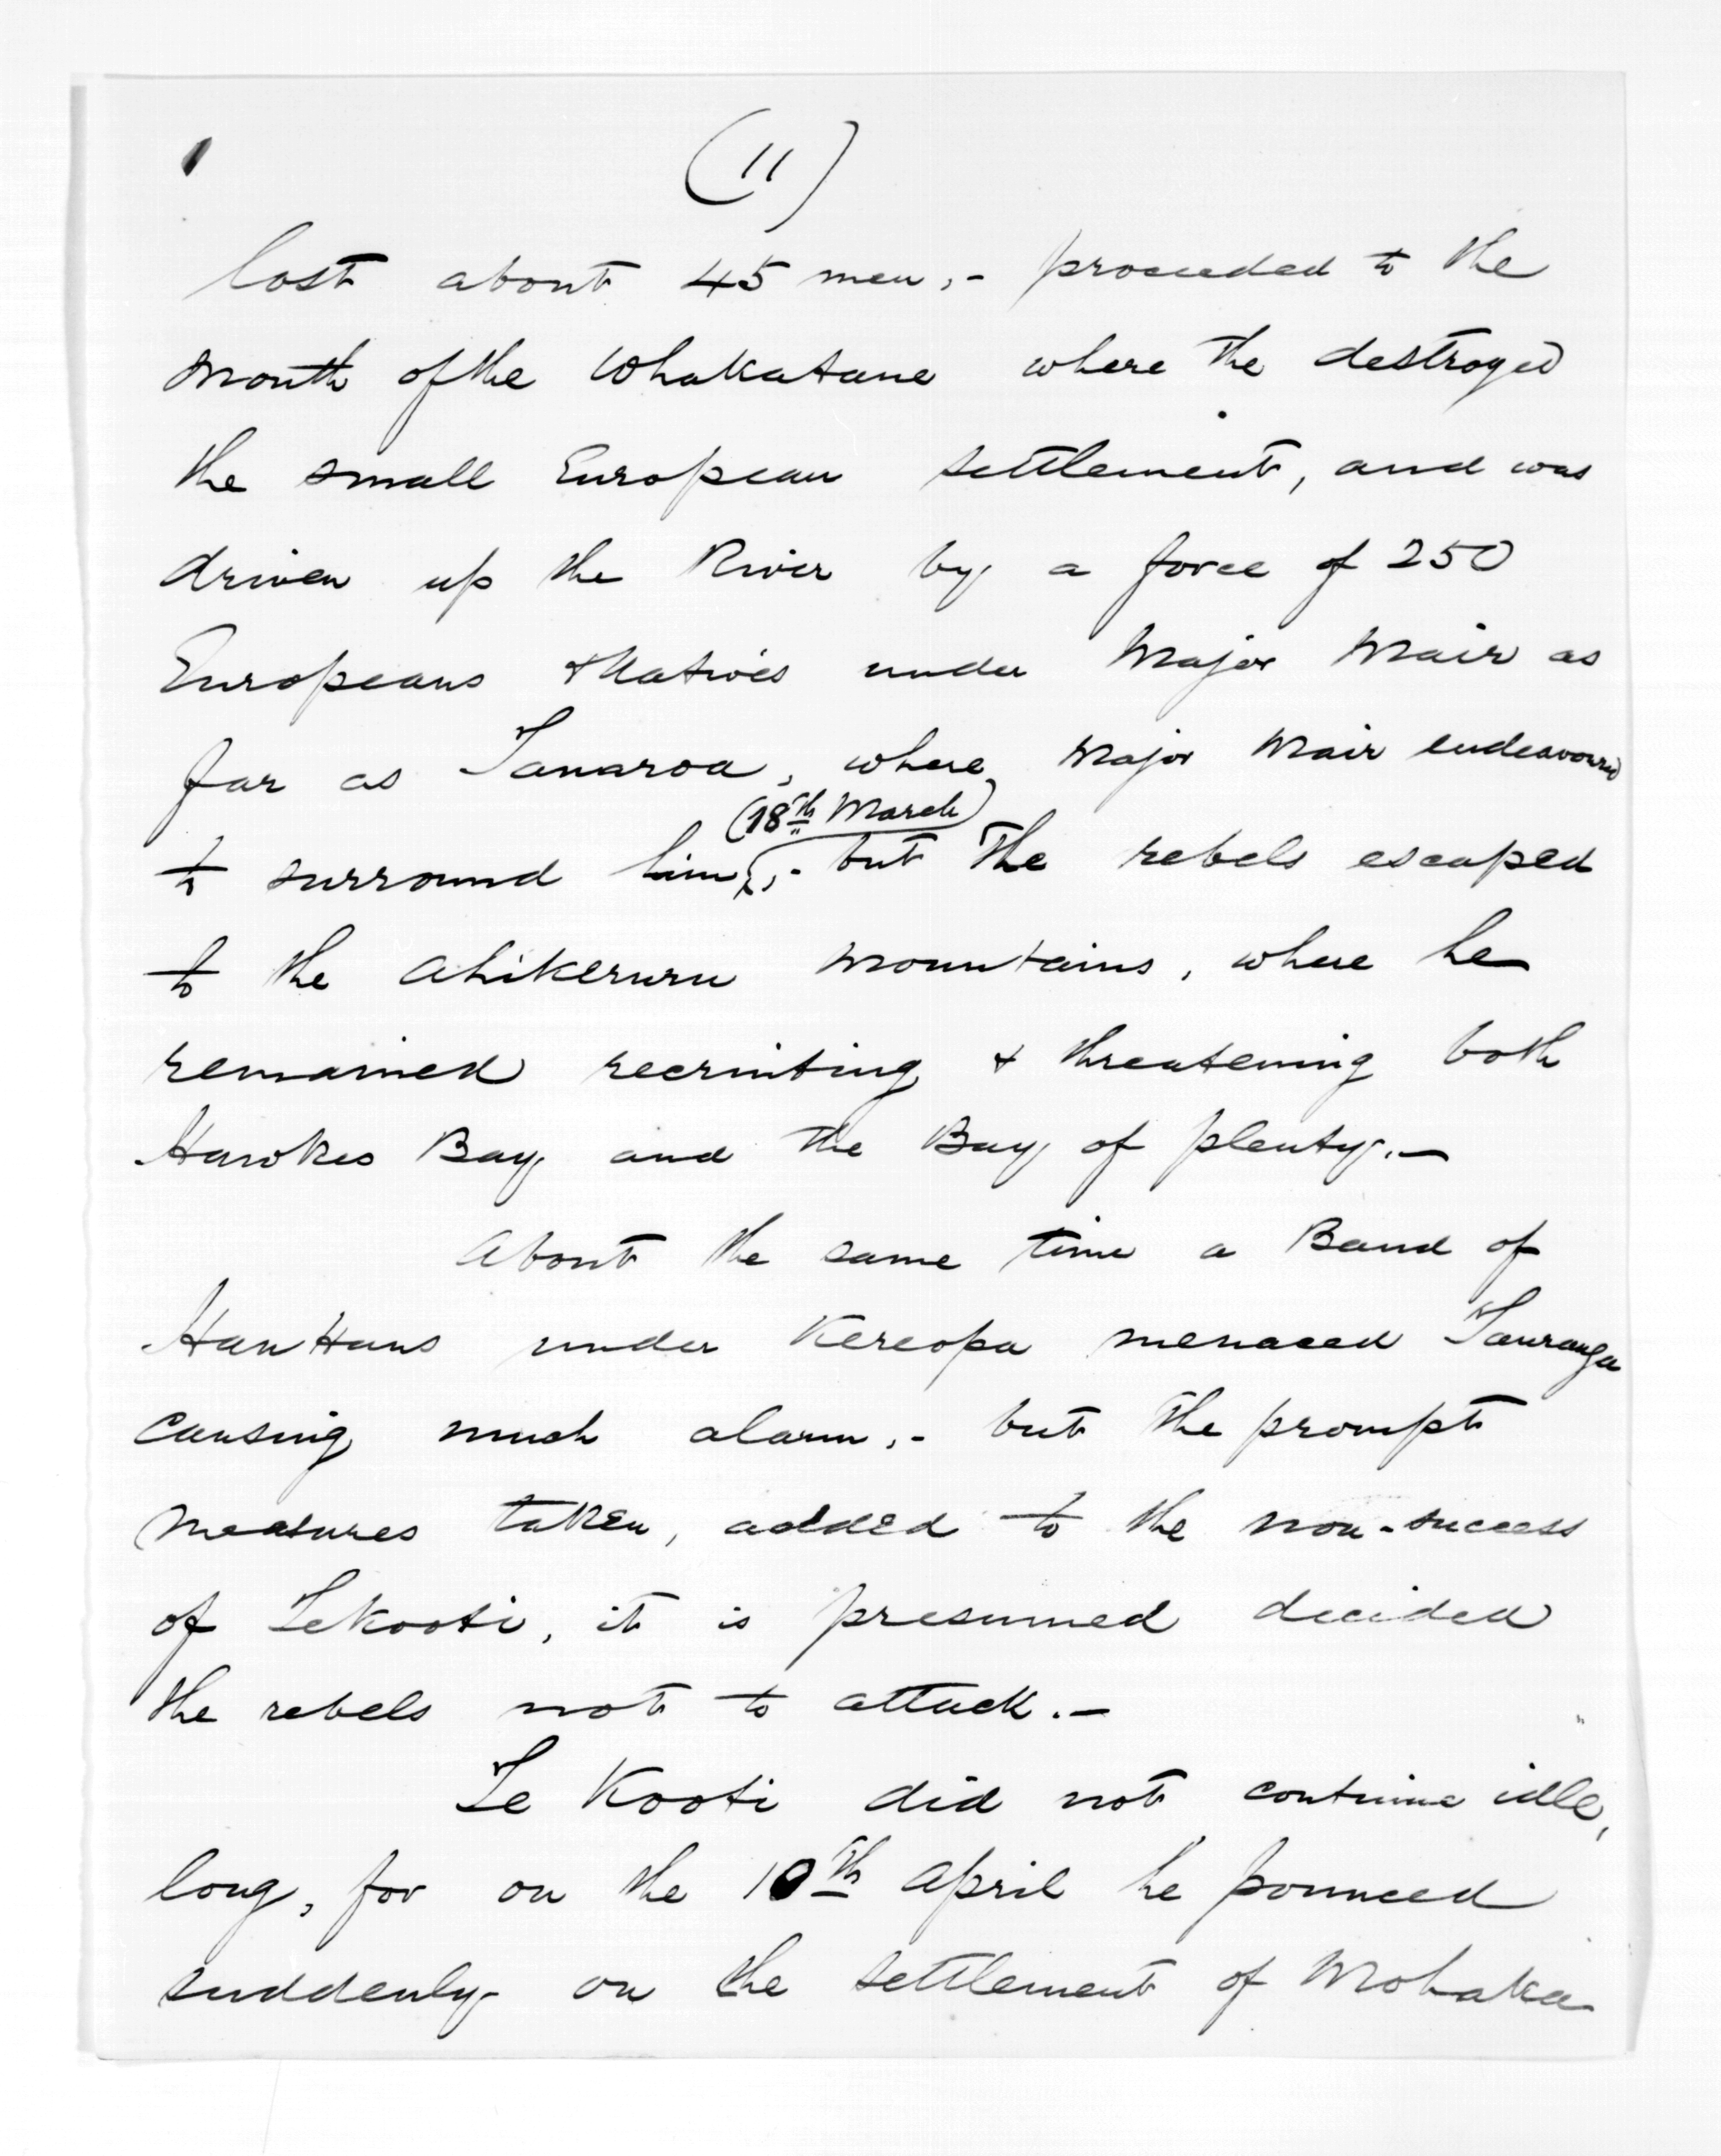 (11)
lost about 45 men,- proceeded to the
mouth of the Whakatane where the destroyed
the small European settlement, and was
driven up the River by a force of 250
Europeans & Natives under Major Mair as
far as Tauaroa, where, Major Mair endeavoured
(18th March)
to surround him,- but the rebels escaped
to the Ahikeruru mountains, where he
remained recruiting & threatening both
Hawkes Bay and the Bay of plenty.-
About the same time a Band of
HauHaus under Kereopa menaced Tauranga
causing much alarm,- but the prompt
measures taken, added to the non-success
of Tekooti, it is presumed decided
the rebels not to attack.-
Te Kooti did not continue idle,
long, for on the 10th April he pounced
suddenly on the settlement of Mohaka